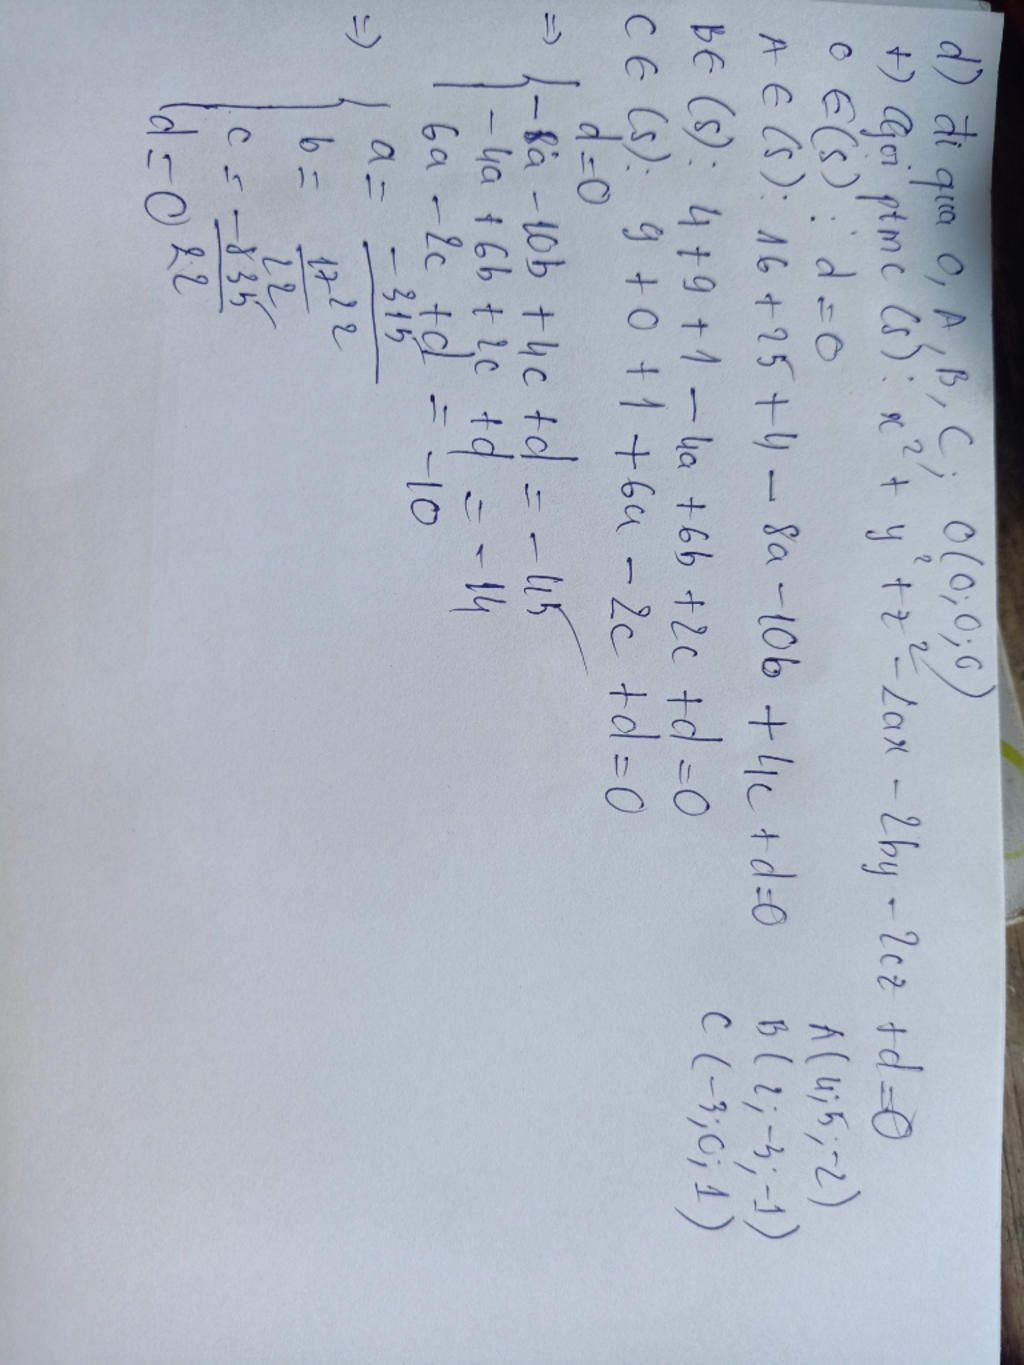 d) đi qua O, A, B, C; O(0;0;0)
+) Gọi ptmc (S): x² + y² + z² - 2ax - 2by - 2cz + d = 0
O ∈ (S): d = 0
A(4;5;-2)
A ∈ (S): 16 + 25 + 4 - 8a - 10b + 4c + d = 0
B(2;-3;-1)
B ∈ (S): 4 + 9 + 1 - 4a + 6b + 2c + d = 0
C(-3;0;1)
C ∈ (S): 9 + 0 + 1 + 6a - 2c + d = 0
d = 0
=> { -8a - 10b + 4c + d = -45
-4a + 6b + 2c + d = -14
6a - 2c + d = -10
=> { a = -315/22
b = 17/22
c = -835/22
d = 0